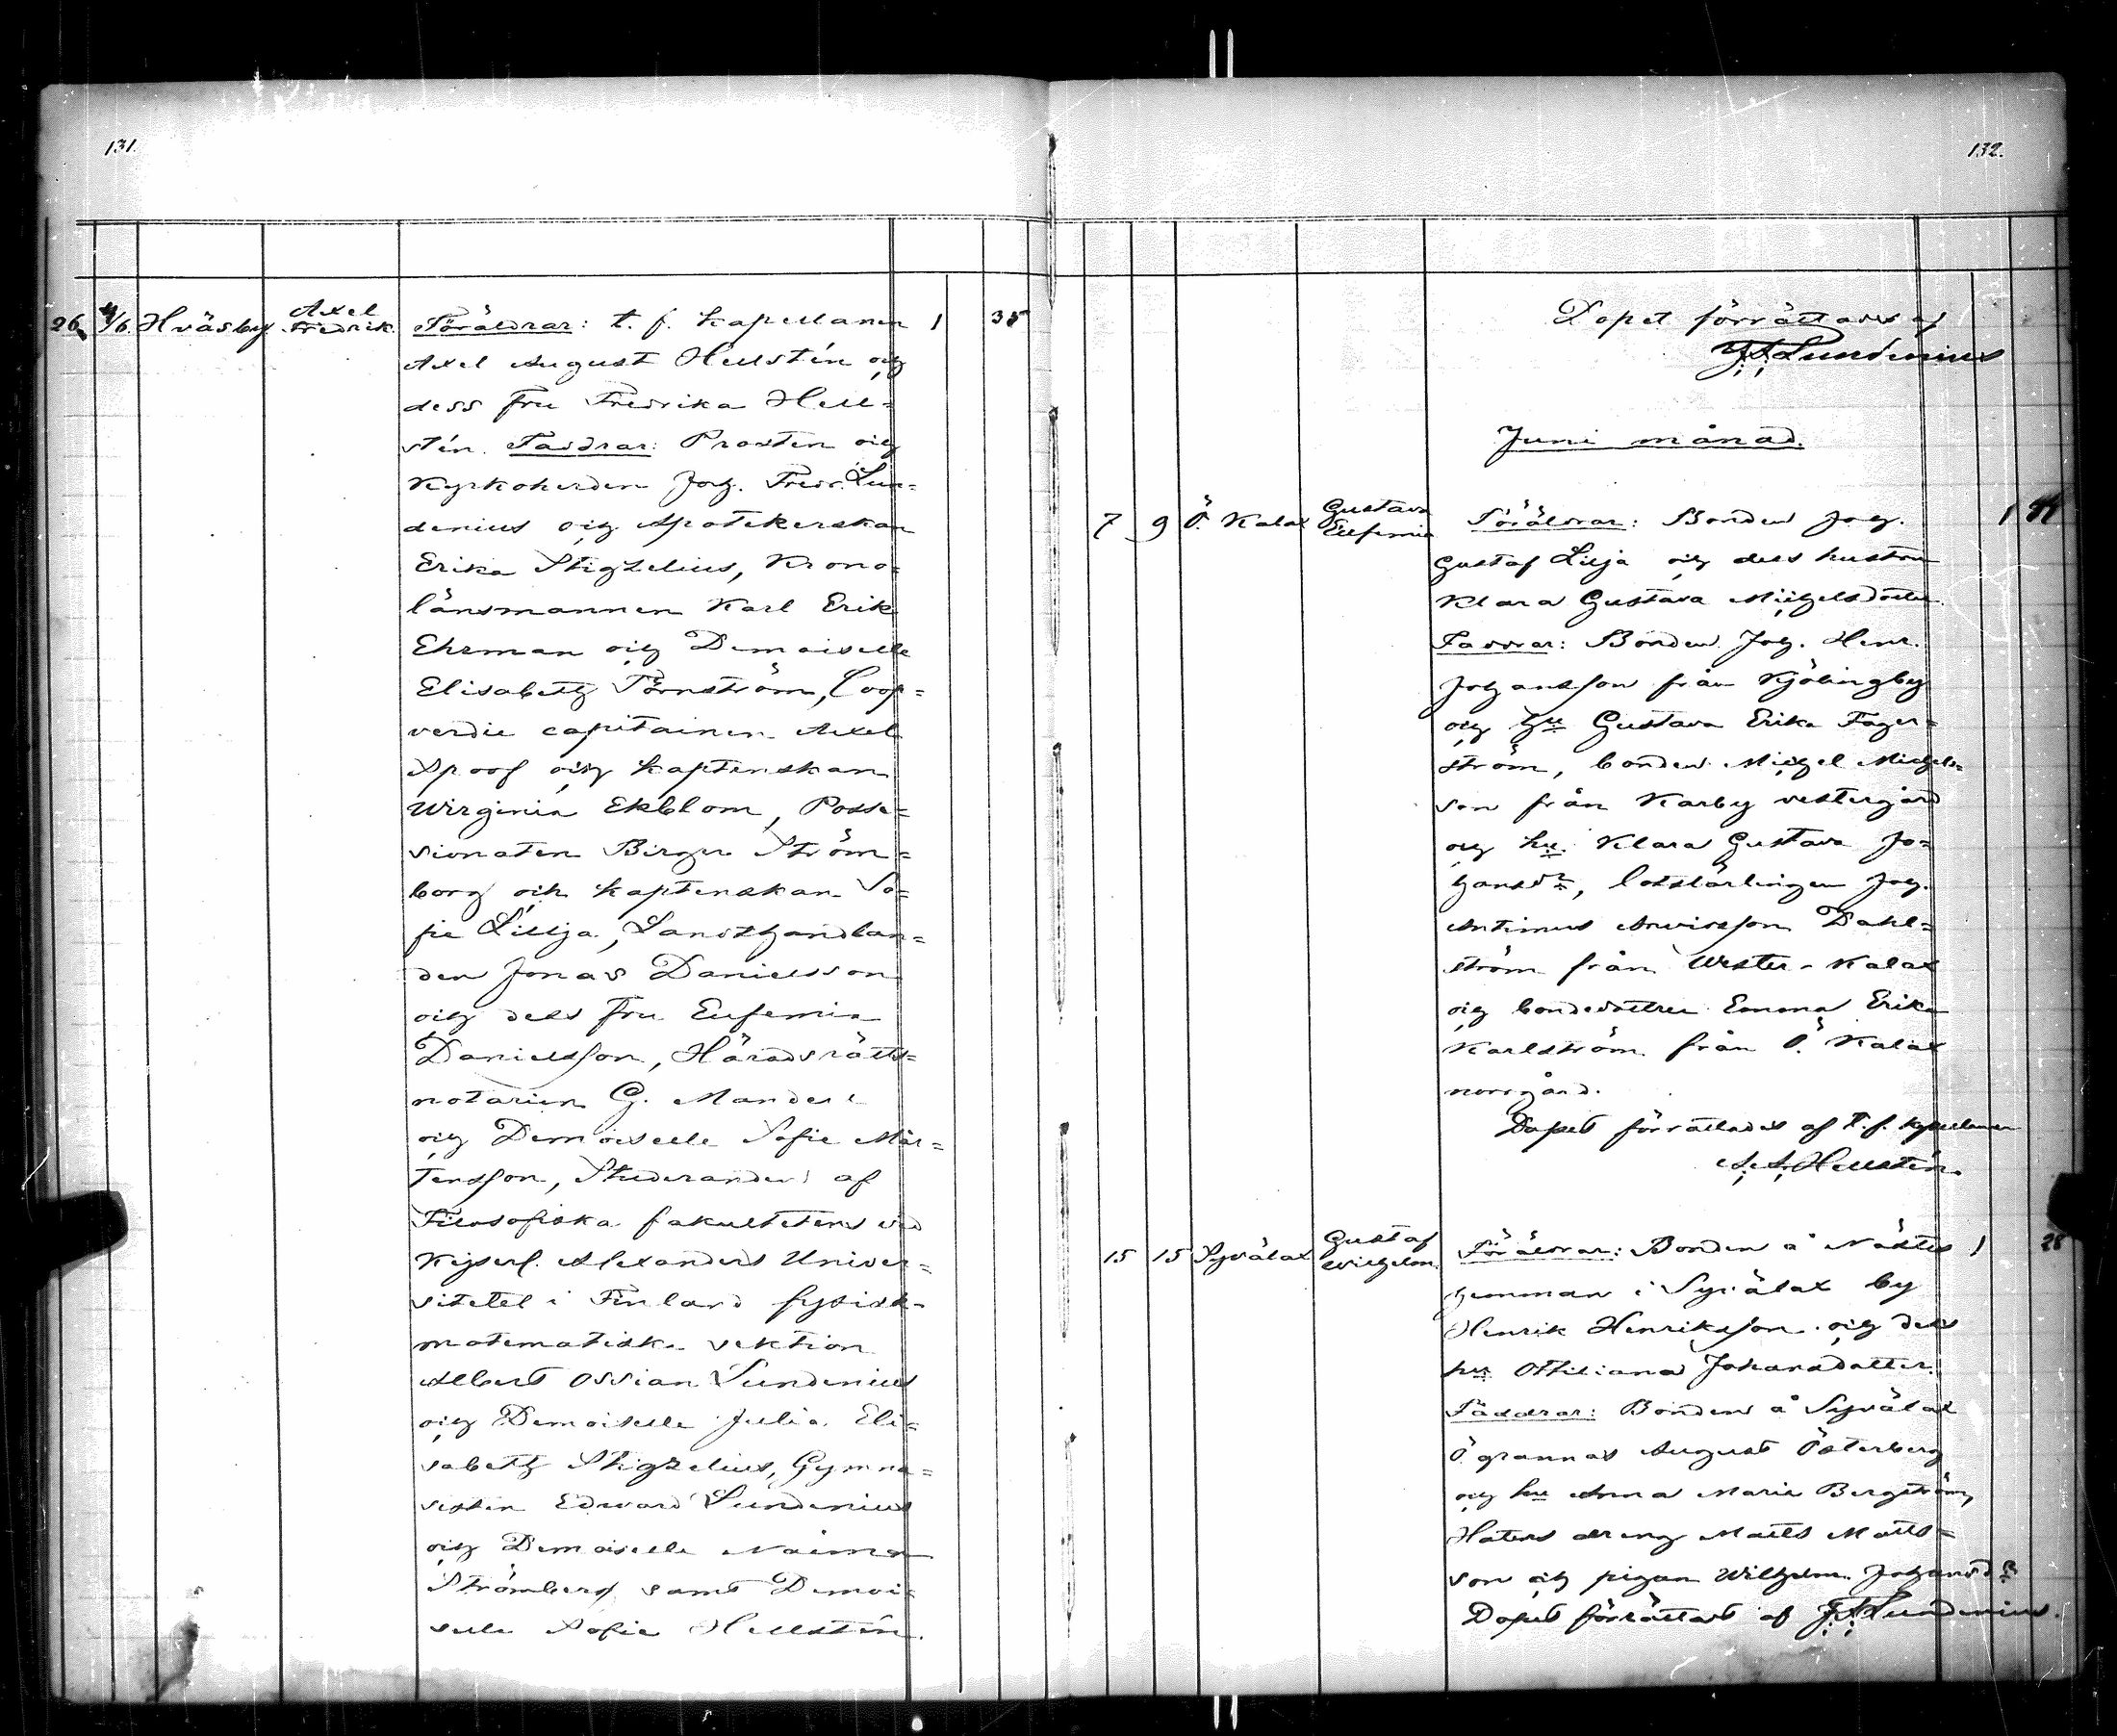 131.
26 4/6. Hväsby Axel Fredrik. Föräldrar: t. f. Kapellanen 1 35
Axel August Hellstén och
dess fru Fredrika Hell=
stén. Faddrar: Prosten och
Kyrkoherden Joh. Fredr. Lun=
denius och Apotekerskan
Erika Stigzelius, Krono=
länsmannen Karl Erik
Ehrman och Demoiselle
Elisabeth Törnström, Coop=
verdie capitainen Axel
Spoof och Kaptenskan
Wirginia Ekblom, Posse=
sionaten Birger Ström=
borg och Kaptenskan So=
fie Lillja, Landthandlan=
den Jonas Danielsson
och dess fru Eufemia
Danielsson, Häradsrätts=
notarien G. Mander
och Demoiselle Sofie Mår=
tensson, Studeranden af
Filosofiska fakultetens vid
Kejserl. Alexanders Univer=
sitetet i Finland fysisk-
matematiska sektion
Albert Ossian Lundenius
och Demoiselle Julia Eli=
sabeth Stigzelius, Gymna=
sisten Edward Lundenius
och Demoiselle Naima
Strömberg samt Demoi=
selle Sofie Hellstén.
132.
Dopet förrättades af
J. F. Lundenius
Juni månad.
7 9 Ö. Kalax Gustava Eufemia Föräldrar: Bonden Joh. 1
Gustaf Lilja och dess hustru
Klara Gustava Michelsdotter.
Faddrar: Bonden Joh. Henr.
Johansson från Kjölingby
och hu Gustava Erika Fager=
ström, bonden Michel Michels=
son från Karby vestergård
och hu Klara Gustava Jo=
hansdr, lotslärlingen Joh.
Antinus Arvidsson Dahl=
ström från Wester-Kalax
och bondedottren Emma Erika
Karlström från Ö. Kalax
norrgård.
Dopet förrättades af t. f. kapellanen
A. A. Hellstén.
15 15 Syvälax Gustaf Wilhelm. Föräldrar: Bonden å Näktis 1 28
hemman i Syvälax by
Henrik Henriksson och dess
hu Ottiliana Johansdotter.
Faddrar: Bonden å Syvälax
Ö. grannas August Österberg
och hu Anna Maria Bergström,
Haters dreng Matts Matts=
son och pigan Wilhelm. Johansdr
Dopet förrättadt af J. F. Lundenius.